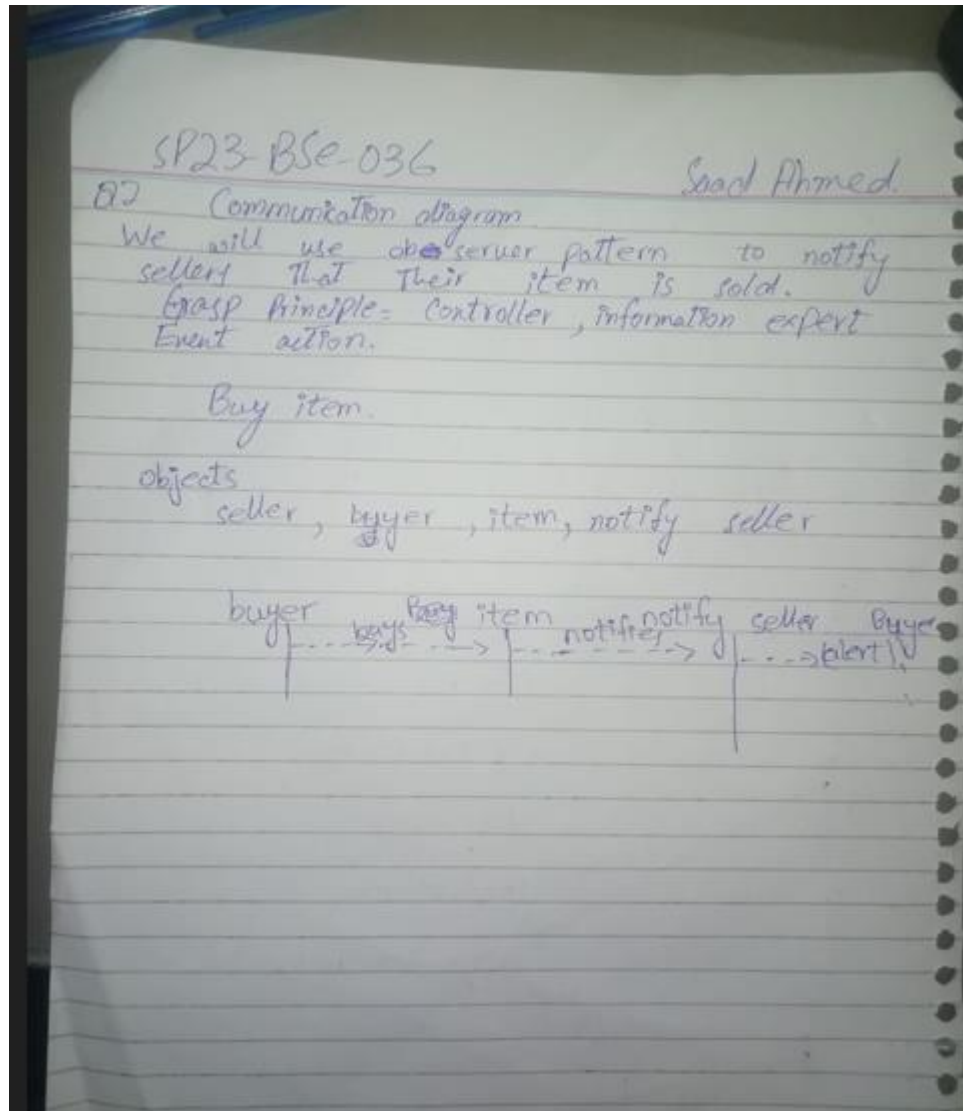 SP23-BSe-036 Saad Ahmed.
Q2 Communication diagram
We will use observer pattern to notify
sellers That Their item is sold.
Grasp Principle = Controller, information expert
Event action.
Buy item.
objects
seller, buyer, item, notify seller
buyer item notify seller Buyer
buys notifies alert